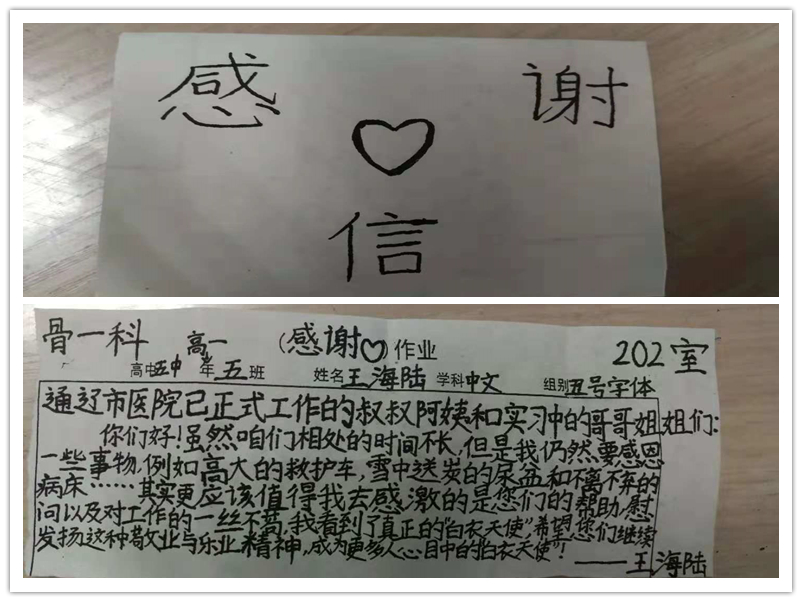 感 谢
信
骨一科 高一 (感谢♡)作业 202室
高中五中 年五班 姓名王海陆 学科中文 组别五号字体
通辽市医院已正式工作的叔叔阿姨和实习中的哥哥姐姐们:
你们好!虽然咱们相处的时间不长,但是我仍然要感恩
一些事物,例如高大的救护车,雪中送炭的尿盆和不离不弃的
病床……其实更应该值得我去感激的是您们的帮助,慰
问以及对工作的一丝不苟,我看到了真正的“白衣天使”,希望您们继续
发扬这种敬业与乐业精神,成为更多人心目中的“白衣天使”!
——王海陆